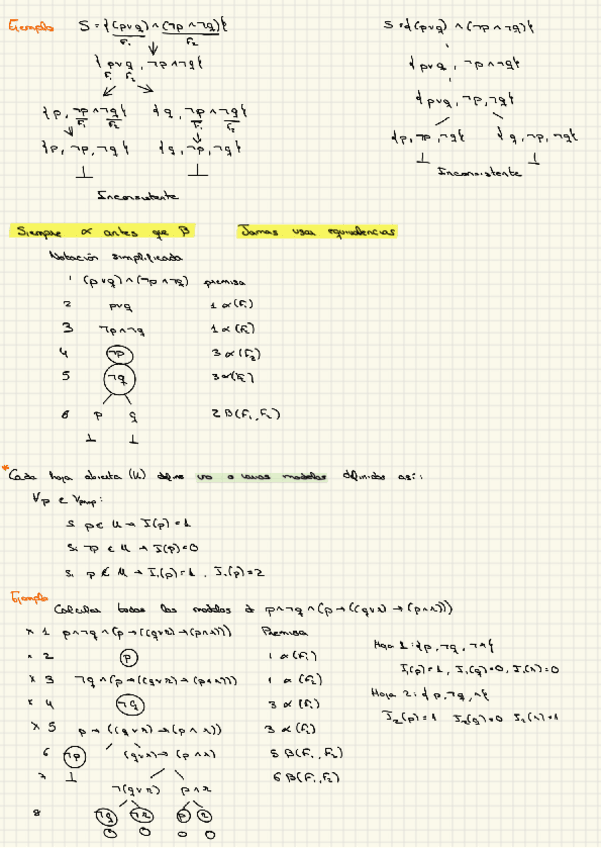 Ejemplo S = {(p∨q) ∧ (¬p∧¬q)}
F₁ F₂
{p∨q, ¬p∧¬q}
F₁ F₂
{p, ¬p∧¬q} {q, ¬p∧¬q}
F₁ F₂ F₁ F₂
{p, ¬p, ¬q} {q, ¬p, ¬q}
⊥ ⊥
Inconsistente
S = {(p∨q) ∧ (¬p∧¬q)}
{p∨q, ¬p∧¬q}
{p∨q, ¬p, ¬q}
{p, ¬p, ¬q} {q, ¬p, ¬q}
⊥ ⊥
Inconsistente
Siempre α antes que β Jamas usar equivalencias
Notación simplificada
1 (p∨q) ∧ (¬p∧¬q) premisa
2 p∨q 1 α(F₁)
3 ¬p∧¬q 1 α(F₂)
4 ¬p 3 α(F₂)
5 ¬q 3 α(F₂)
6 p q 2 β(F₁, F₂)
⊥ ⊥
* Cada hoja abierta (U) define uno o varios modelos definidos así:
∀p ∈ Vprop:
Si p ∈ U → I(p) = 1
Si ¬p ∈ U → I(p) = 0
Si p ∉ U → I₁(p) = 1, I₂(p) = 2
Ejemplo
Calcular todos los modelos de p∧¬q∧(p→((q∨r)→(p∧r)))
× 1 p∧¬q∧(p→((q∨r)→(p∧r))) Premisa
× 2 p 1 α(F₁)
× 3 ¬q∧(p→((q∨r)→(p∧r))) 1 α(F₂)
× 4 ¬q 3 α(F₁)
× 5 p→((q∨r)→(p∧r)) 3 α(F₂)
6 ¬p (q∨r)→(p∧r) 5 β(F₁, F₂)
7 ⊥ 6 β(F₁, F₂)
¬(q∨r) p∧r
8 ¬q ¬r p r
Hoja 1: {p, ¬q, ¬r}
I₁(p)=1, I₁(q)=0, I₁(r)=0
Hoja 2: {p, ¬q, r}
I₂(p)=1 I₂(q)=0 I₂(r)=1